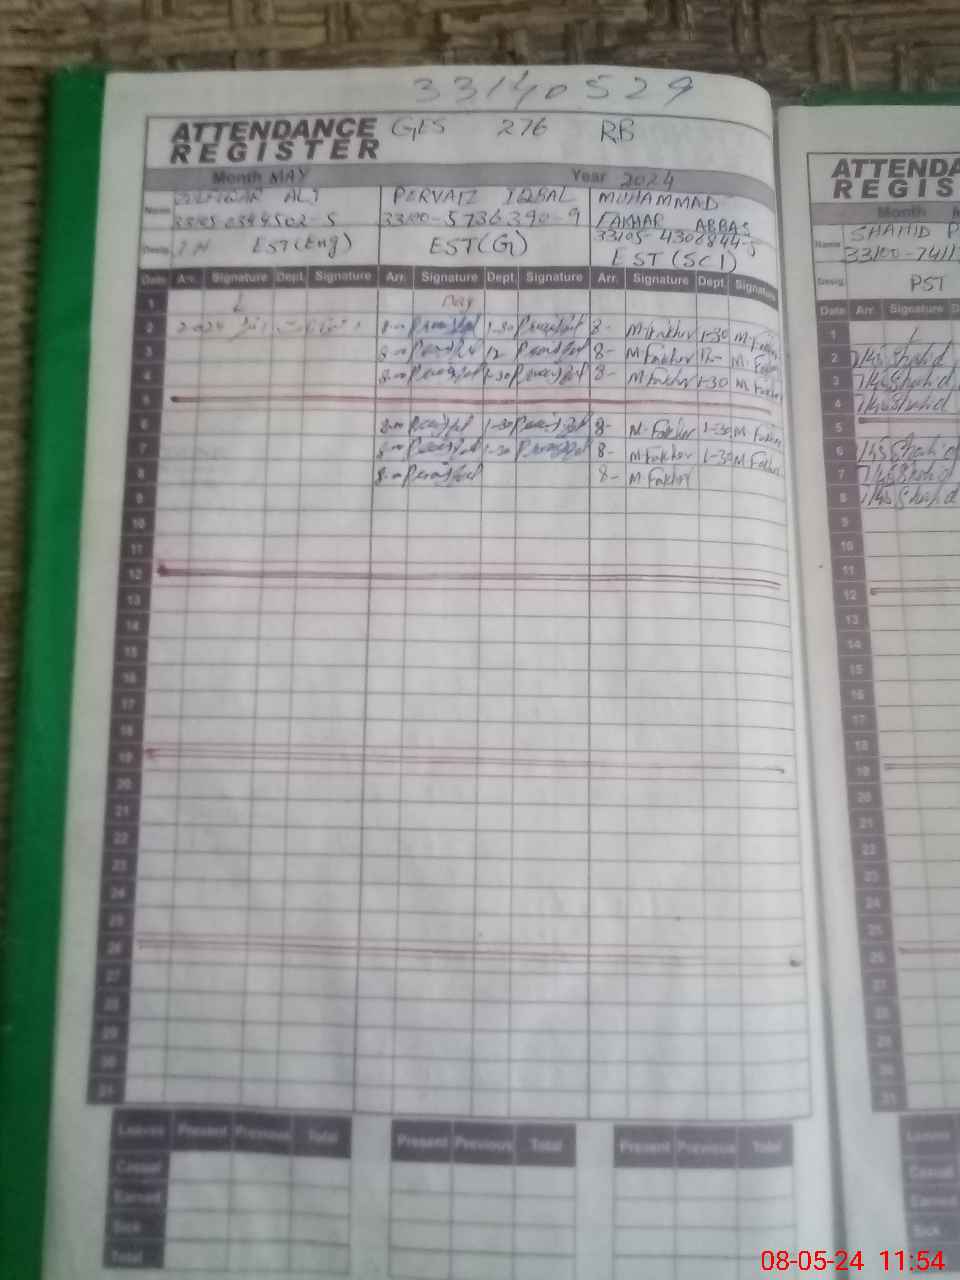 33140529
ATTENDANCE REGISTER GES 276 RB
Month MAY Year 2024
Name ALI PERVAIZ IQBAL MUHAMMAD FAKHAR ABBAS
33100-5736390-9 33105-4306844-5
Desig. EST(Eng) EST(G) EST(SCI)
Date Arr. Signature Dept. Signature Arr. Signature Dept. Signature Arr. Signature Dept. Signature
1 May
2 2024 8-00 1-30 8- M.Fakhar 1-30 M.Fakhar
3 8-00 12 8- M.Fakhar 12- M.Fakhar
4 8-00 1-30 8- M.Fakhar 1-30 M.Fakhar
5
6 8-00 1-30 8- M.Fakhar 1-30 M.Fakhar
7 8-00 1-30 8- M.Fakhar 1-30 M.Fakhar
8 8-00 8- M.Fakhar
9
10
11
12
13
14
15
16
17
18
19
20
21
22
23
24
25
26
27
28
29
30
31
Leaves Present Previous Total Present Previous Total Present Previous Total
Casual
Earned
Sick
Total
ATTENDA
REGIS
Month M
Name SHAHID P
33100-7411
Desig. PST
Date Arr. Signature D
1
2 7/45 Shahid
3 7/45 Shahid
4 7/45 Shahid
5
6 7/45 Shahid
7 7/45 Shahid
8 7/45 Shahid
9
10
11
12
13
14
15
16
17
18
19
20
21
22
23
24
25
26
27
28
29
30
31
Leaves
Casual
Earned
Sick
Total
08-05-24 11:54